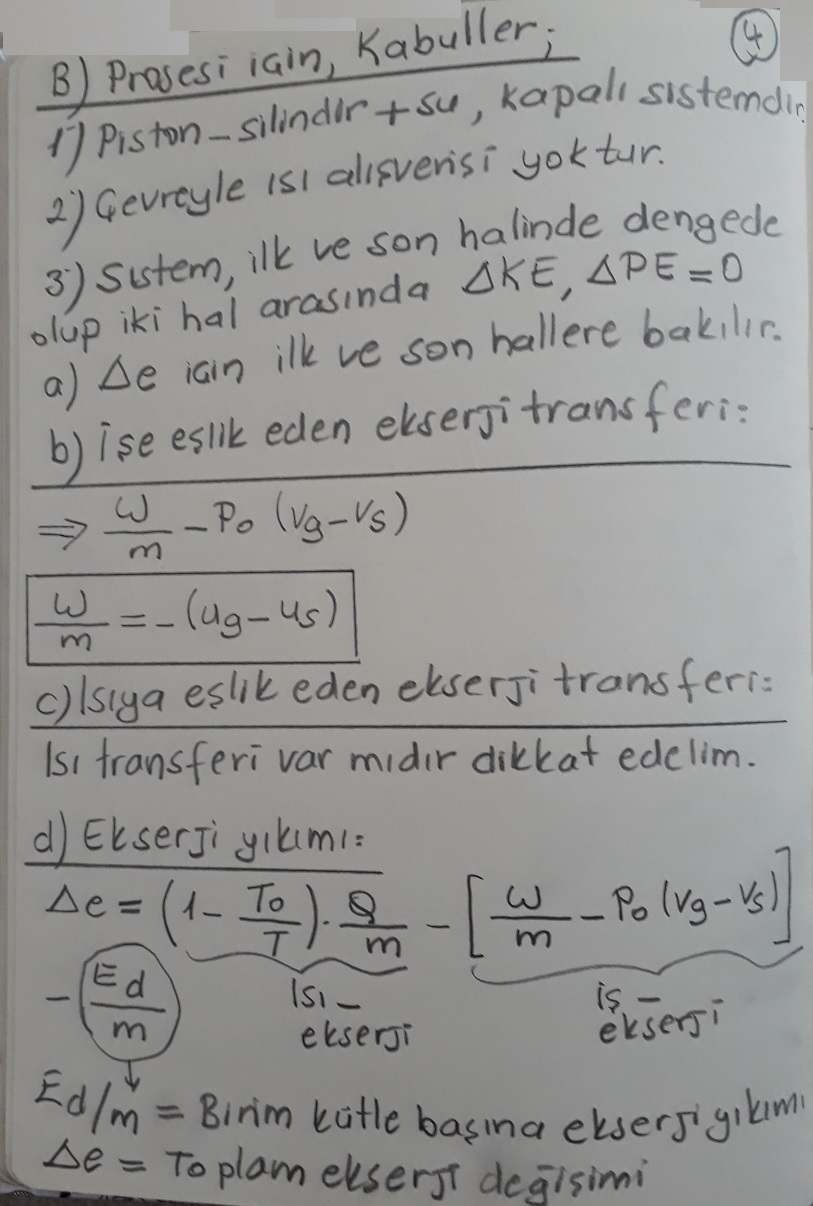 4
B) Prosesi için, Kabuller;
1) Piston-silindir+su, kapalı sistemdir.
2) Çevreyle ısı alışverişi yoktur.
3) Sistem, ilk ve son halinde dengede
olup iki hal arasında ΔKE, ΔPE=0
a) Δe için ilk ve son hallere bakılır.
b) İşe eşlik eden ekserji transferi:
⇒ W/m - P₀ (vg-vs)
W/m = -(ug-us)
c) Isıya eşlik eden ekserji transferi:
Isı transferi var mıdır dikkat edelim.
d) Ekserji yıkımı:
Δe = (1 - T₀/T) · Q/m - [W/m - P₀ (vg-vs)]
- Ed/m
Isı-ekserji
iş-ekserji
Ed/m = Birim kütle başına ekserji yıkımı
Δe = Toplam ekserji değişimi